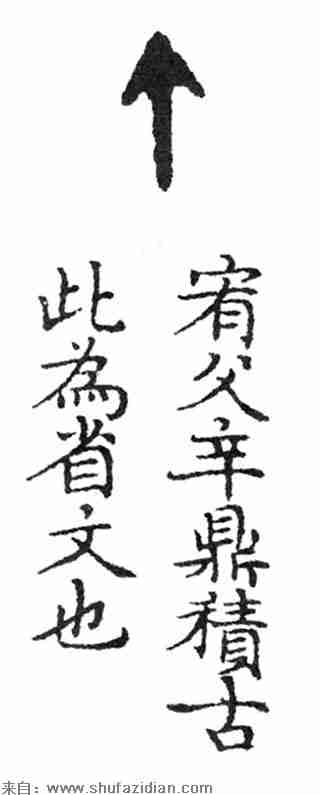 宥父辛鼎積古
此為省文也
来自：www.shufazidian.com